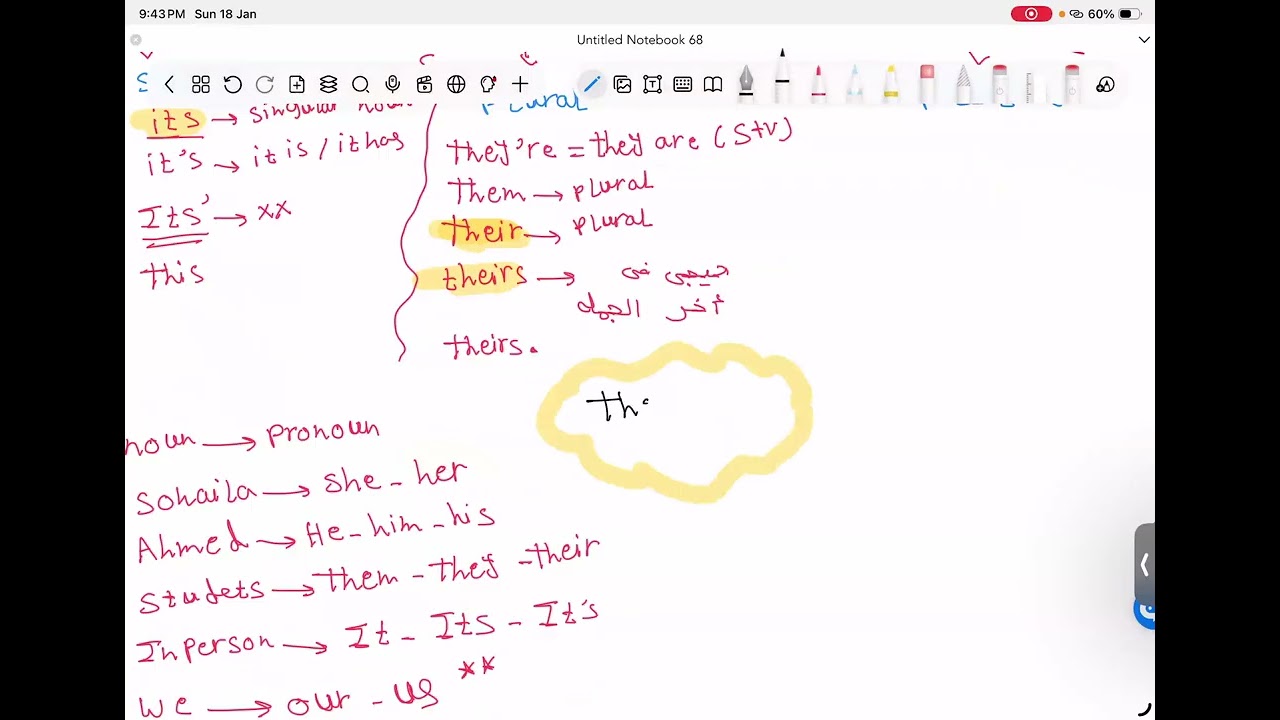 9:43 PM Sun 18 Jan
60%
Untitled Notebook 68
its → singular noun
it's → it is / it has
Its' → xx
this
plural
they're = they are (S+V)
Them → plural
their → plural
theirs → حيجى فى
أخر الجمله
theirs.
Th
noun → pronoun
Sohaila → she - her
Ahmed → He - him - his
Studets → Them - They - their
Inperson → It - Its - It's
We → our - us **